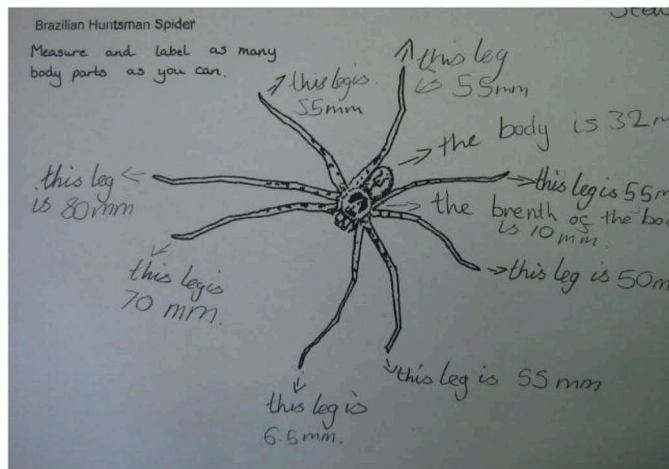 Brazilian Huntsman Spider
Measure and label as many
body parts as you can.
this leg
is 55mm
this leg is
55mm
the body is 32m
this leg
is 80mm
this leg is 55m
the brenth of the bo
is 10mm.
this leg is 50m
this leg is
70 mm.
this leg is 55mm
this leg is
6.5mm.